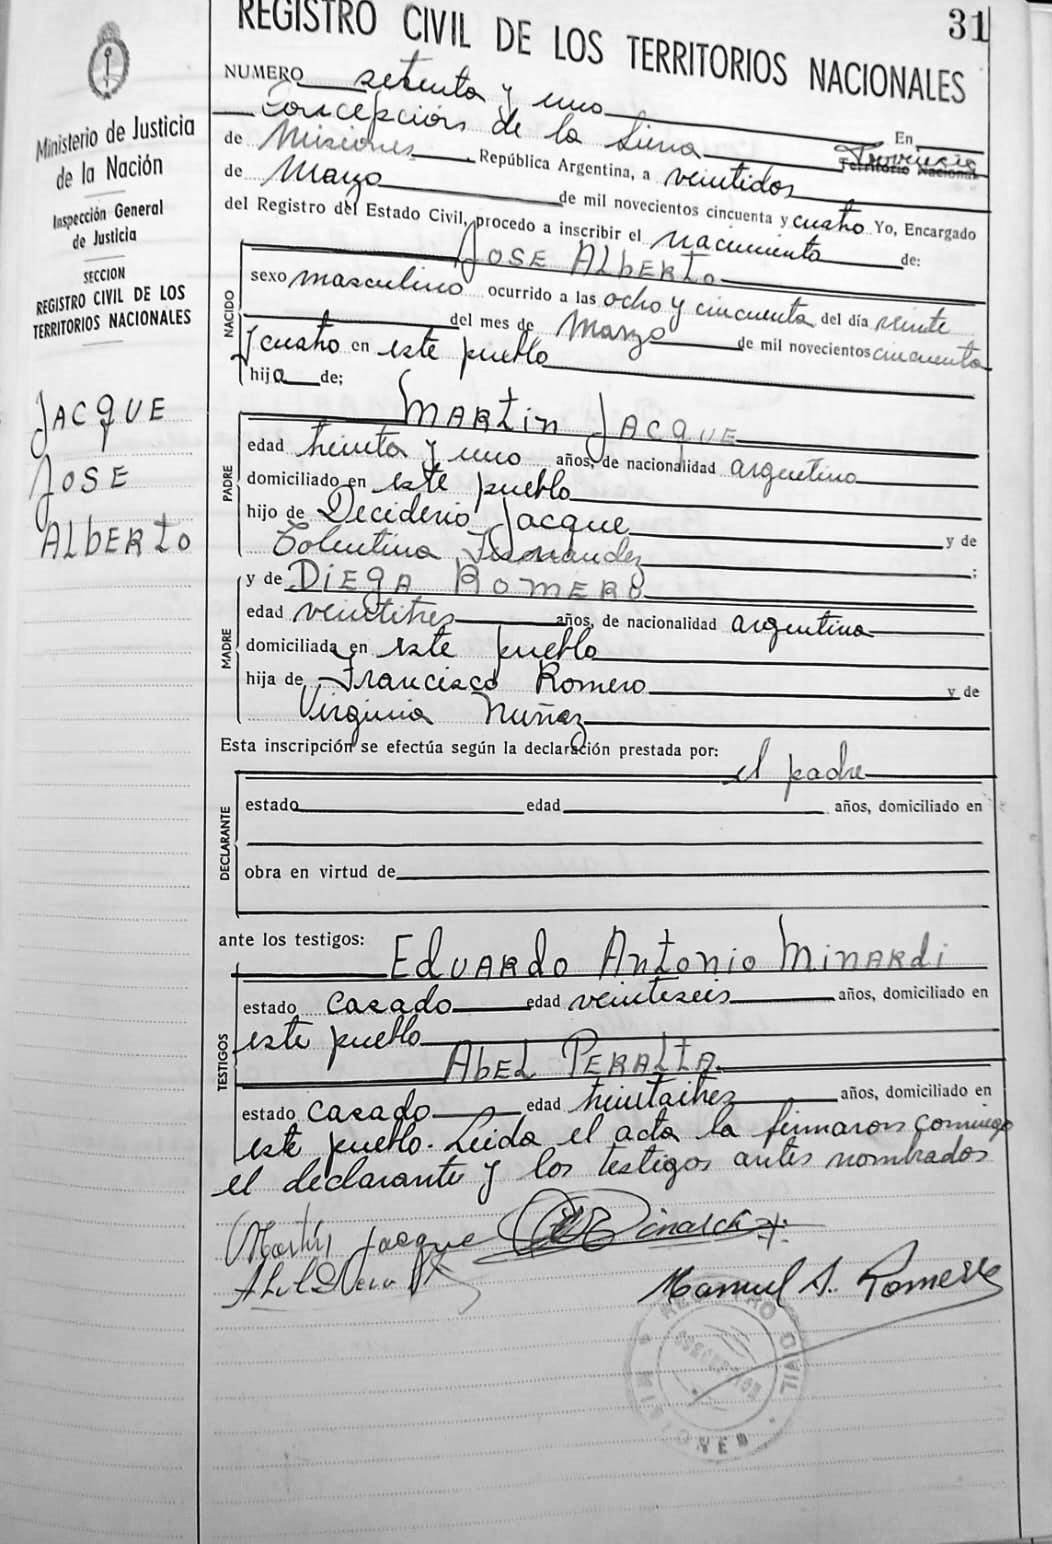 31
REGISTRO CIVIL DE LOS TERRITORIOS NACIONALES
Ministerio de Justicia
de la Nación
Inspección General
de Justicia
SECCION
REGISTRO CIVIL DE LOS
TERRITORIOS NACIONALES
JACQUE
JOSE
ALbERto
NUMERO setenta y uno En
Concepción de la Sierra Provincia
de Misiones República Argentina, a veintidos Territorio Nacional
de Marzo de mil novecientos cincuenta y cuatro Yo, Encargado
del Registro del Estado Civil, procedo a inscribir el nacimiento de:
NACIDO
JOSE ALbERto
sexo masculino ocurrido a las ocho y cincuenta del día veinte
del mes de Marzo de mil novecientos cincuenta
y cuatro en este pueblo
hijo de;
PADRE
MARtin JACQUE
edad treinta y uno años, de nacionalidad argentino
domiciliado en este pueblo
hijo de Deciderio Jacque y de
Tolentina Fernandez ;
MADRE
y de DiEgA ROMERO
edad veintitres años, de nacionalidad argentina
domiciliada en este pueblo
hija de Francisco Romero y de
Virginia Nuñez
Esta inscripción se efectúa según la declaración prestada por:
el padre
DECLARANTE
estado edad años, domiciliado en
obra en virtud de
ante los testigos:
TESTIGOS
EdUARdo AntOnio MinARdi
estado casado edad veinteseis años, domiciliado en
este pueblo
AbEL PERALtA
estado casado edad treintaitres años, domiciliado en
este pueblo. Leida el acta la firmaron conmigo
el declarante y los testigos antes nombrados
Martin Jacque Minardi
Manuel A. Romero
REGISTRO CIVIL
MISIONES